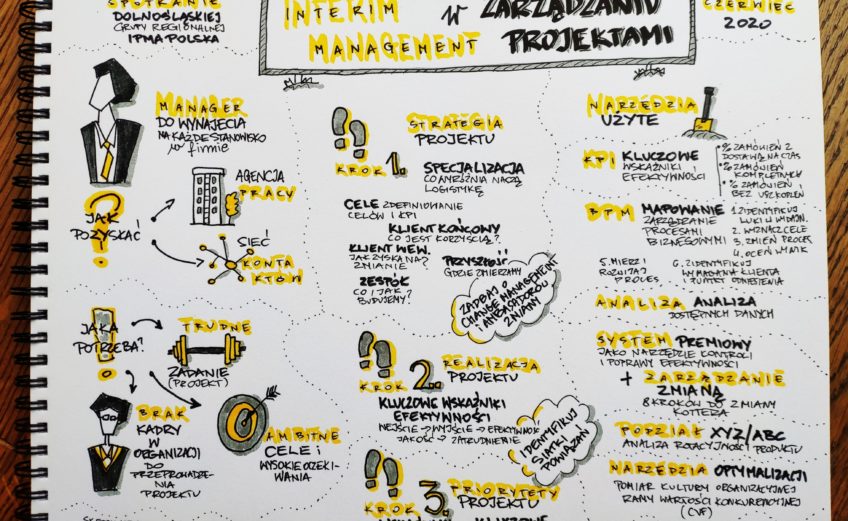 SPOTKANIE
DOLNOŚLĄSKIEJ
GRUPY REGIONALNEJ
IPMA POLSKA
INTERIM
MANAGEMENT
W ZARZĄDZANIU
PROJEKTAMI
CZERWIEC
2020
MANAGER
DO WYNAJĘCIA
NA KAŻDE STANOWISKO
w firmie
JAK
POZYSKAĆ
?
AGENCJA
PRACY
SIEĆ
KONTA
KTÓW
JAKA
POTRZEBA?
TRUDNE
ZADANIE
(PROJEKT)
BRAK
KADRY
W
ORGANIZACJI
DO
PRZEPROWADZE-
NIA
PROJEKTU
AMBITNE
CELE i
WYSOKIE OCZEKI-
WANIA
STRATEGIA
PROJEKTU
KROK 1.
SPECJALIZACJA
CO WYRÓŻNIA NASZĄ
LOGISTYKĘ
CELE ZDEFINIOWANIE
CELÓW I KPI
KLIENT KOŃCOWY
CO JEST KORZYŚCIĄ?
KLIENT WEW.
JAK ZYSKA NA?
ZMIANIE
PRZYSZŁOŚĆ
GDZIE ZMIERZAMY
ZESPÓŁ
CO I JAK?
BUDUJEMY?
ZADBAJ O
CHANGE MANAGEMENT
i AMBASADORÓW
ZMIANY
KROK 2.
REALIZACJA
PROJEKTU
KLUCZOWE WSKAŹNIKI
EFEKTYWNOŚCI
WEJŚCIE → WYJŚCIE → EFEKTYWNOŚĆ
JAKOŚĆ → ZATRUDNIENIE
IDENTYFIKUJ
SIATKĘ
POWIĄZAŃ
KROK 3.
PRIORYTETY
PROJEKTU
KLUCZOWE
NARZĘDZIA
UŻYTE
KPI KLUCZOWE
WSKAŹNIKI
EFEKTYWNOŚCI
• % ZAMÓWIEŃ Z
DOSTAWĄ NA CZAS
• % ZAMÓWIEŃ
KOMPLETNYCH
• % ZAMÓWIEŃ
BEZ USZKODZEŃ
BPM MAPOWANIE
ZARZĄDZANIE
PROCESAMI
BIZNESOWYMI
1. IDENTYFIKUJ
LUKI W WYDAJN.
2. WYZNACZ CELE
3. ZMIEŃ PROCES
4. OCEŃ WYNIK
5. MIERZ I
ROZWIJAJ
PROCES
6. ZIDENTYFIKUJ
WYMAGANIA KLIENTA
I PUNKT ODNIESIENIA
ANALIZA ANALIZA
DOSTĘPNYCH DANYCH
SYSTEM PREMIOWY
JAKO NARZĘDZIE KONTROLI
I POPRAWY EFEKTYWNOŚCI
+ ZARZĄDZANIE
ZMIANĄ
8 KROKÓW DO ZMIANY
KOTTERA
PODZIAŁ XYZ/ABC
ANALIZA ROTACYJNOŚCI PRODUKTU
NARZĘDZIA OPTYMALIZACJI
POMIAR KULTURY ORGANIZACYJNEJ
RAMY WARTOŚCI KONKURENCYJNEJ
(CVF)